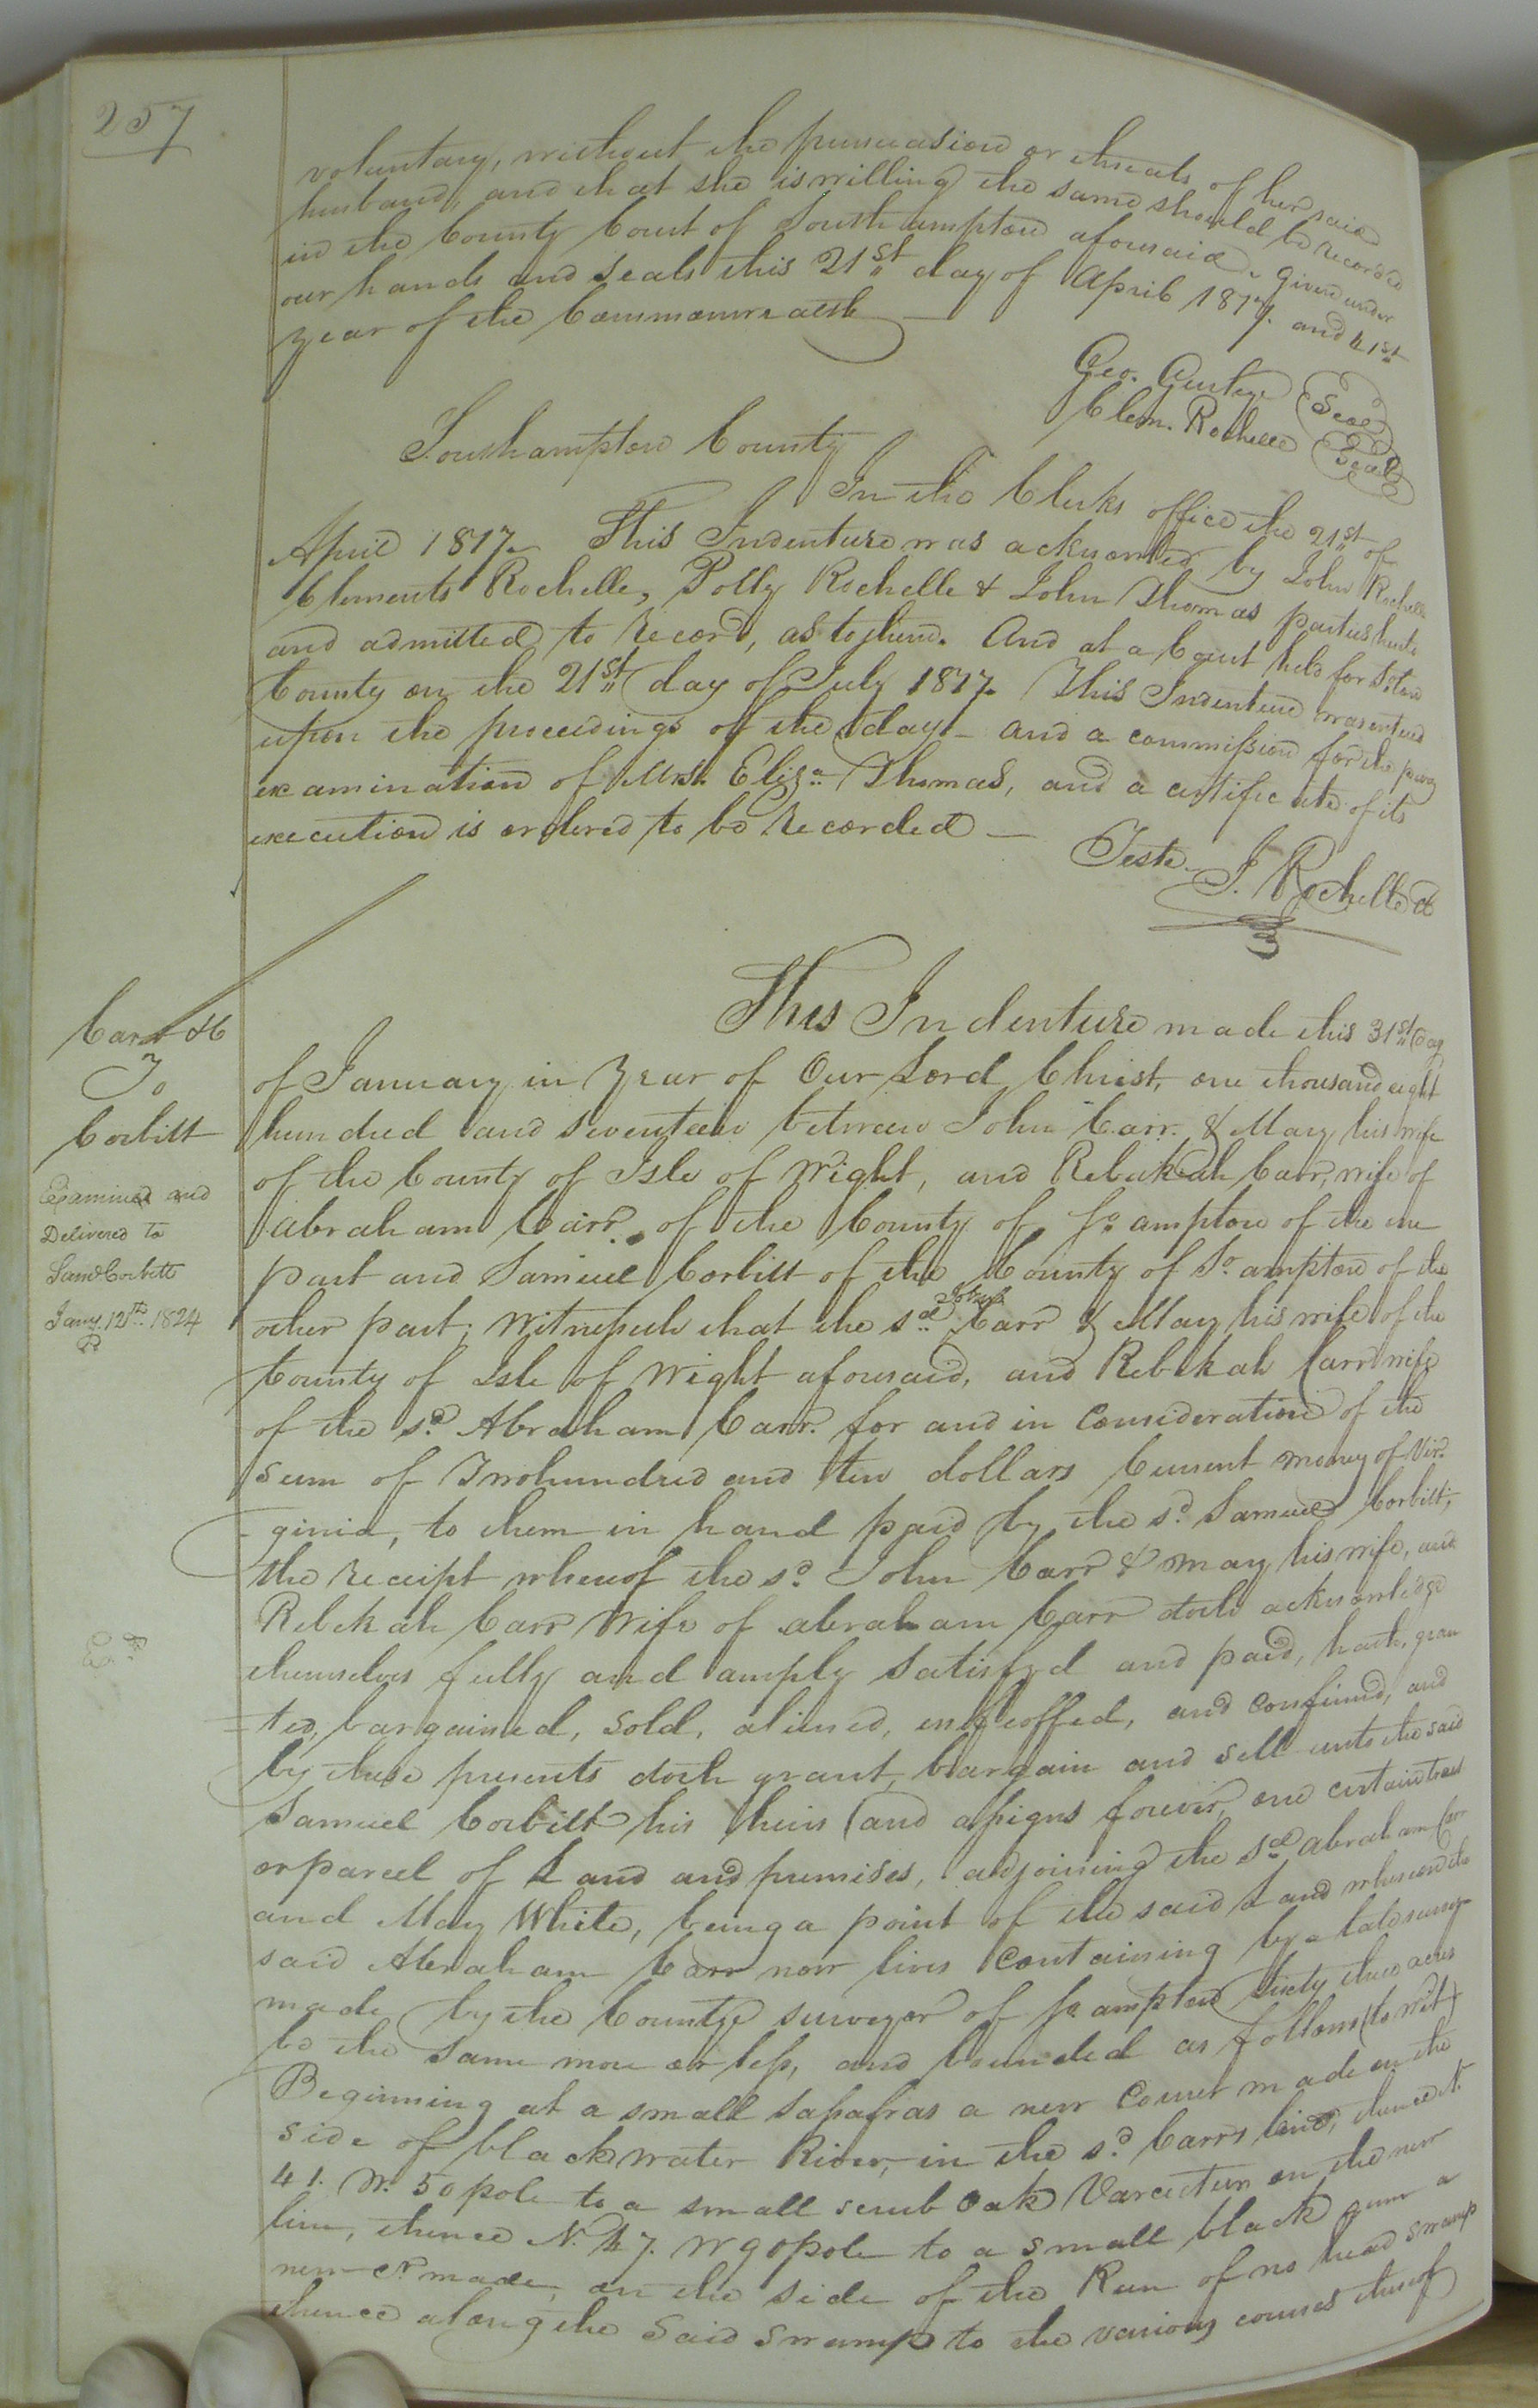 257
voluntary, without the persuasion or threats of her said
husband, and that she is willing the same should be recorded
in the County Court of Southampton aforesaid. Given under
our hands and seals this 21st day of April 1817. and 41st
year of the Commonwealth
Geo. Gurley (Seal)
Clem. Rochelle (Seal)
Southampton County
In the Clerks office the 21st of
April 1817. This Indenture was acknowled. by John Rochelle
Clements Rochelle, Polly Rochelle & John Thomas parties hereto
and admitted to record, as to them. And at a Court held for Soton
County on the 21st day of July 1817. This Indenture was entered
upon the proceedings of the day - and a commission for the privy
examination of Mrs. Eliza. Thomas, and a certificate of its
execution is ordered to be Recorded —
Teste J. Rochelle Ct
Carr &c
To
Corbitt
Examined and
Delivered to
Saml Corbett
Jany. 12th 1824
This Indenture made this 31st day
of January in Year of Our Lord Christ, one thousand eight
hundred and seventeen between John Carr. & Mary his wife
of the County of Isle of Wight, and Rebekah Carr, wife of
Abraham Carr. of the County of So ampton of the one
part and Samuel Corbitt of the County of So. ampton of the
other part; Witnesseth that the sd. John Carr & Mary his wife of the
County of Isle of Wight aforesaid, and Rebekah Carr wife
of the sd. Abraham Carr. for and in Consideration of the
sum of Two hundred and ten dollars Current money of Vir-
ginia, to them in hand paid by the sd. Samuel Corbitt,
the receipt whereof the sd. John Carr & Mary his wife, and
Rebekah Carr Wife of Abraham Carr doth acknowledge
themselves fully and amply Satisfyd and paid, hath, gran
=ted, bargained, sold, aliened, enfeoffed, and confirmed, and
by these presents doth grant, bargain and sell unto the said
Samuel Corbitt his heirs and assigns forever, one certain tract
or parcel of Land and premises, adjoining the sd. Abraham Carr
and Mary White, being a point of the said Land whereon the
said Abraham Carr now lives Containing by a late survey
made by the County surveyor of So. ampton Sixty three acres
be the same more or less, and bounded as follows (to wit)
Beginning at a small Sassafras a new Corner made on the
side of black water River, in the sd. Carrs line, thence N.
41. W. 50 pole to a small scrub Oak on the new
line, thence N. 47. W 90 pole to a small black gum a
new Cr. made, on the side of the Run of no head swamp
thence along the said swamp to the various courses thereof